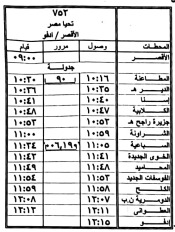 ٧٥٢
تحيا مصر
الأقصر / ادفو
المحطات وصول مرور قيام
الأقصر ٠٩:٠٠
جدولة
المطاعنة ١٠:١٦ ٩٠ ١٠:٢٠
الدير ١٠:٢٥ ١٠:٢٦
١٠:٤٠ ١٠:٤١
الكلابية ١٠:٤٧ ١٠:٤٨
جزيرة راجح ١٠:٥٢ ١٠:٥٣
الشراونة ١٠:٥٩ ١١:٠٠
السباعية ١١:٠٥ ١١:٢٤
القوى الجديدة ١١:٤١ ١١:٤٢
المحاميد ١١:٤٨ ١١:٤٩
الفوسفات الجديد ١١:٥٣ ١١:٥٤
الكلح ١١:٥٨ ١١:٥٩
الدومرية ١٢:٠٧ ١٢:٠٨
العطوانى ١٢:١١ ١٢:١٢
إدفو ١٢:١٥